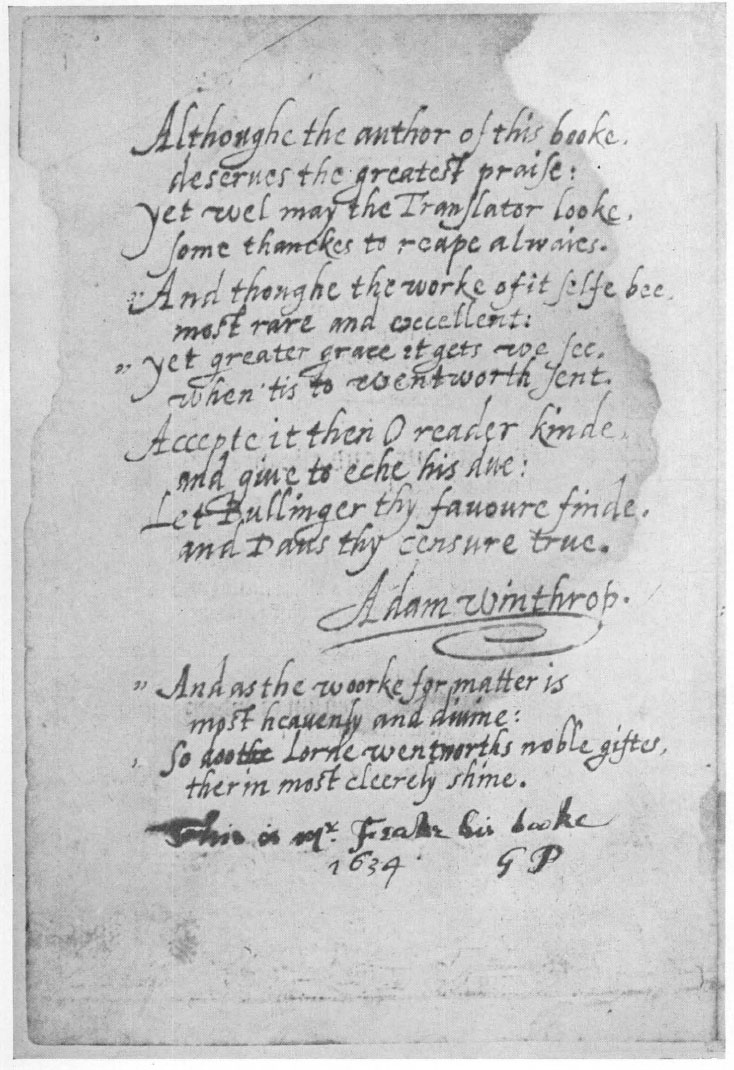 Althoughe the author of this booke,
deserves the greatest praise:
yet wel may the Translator looke,
some thanckes to reape alwaies.
" And thoughe the worke of it selfe bee,
most rare and excellent:
" yet greater grace it gets we see,
when 'tis to wentworth sent.
Accepte it then O reader kinde,
and give to eche his due:
Let Bullinger thy favoure finde,
and Daus thy censure true.
Adam Winthrop.
" And as the woorke for matter is
most heavenly and divine:
, So doothe Lorde wentworths noble giftes,
therin most cleerely shine.
This is mr. his booke
1634 G P